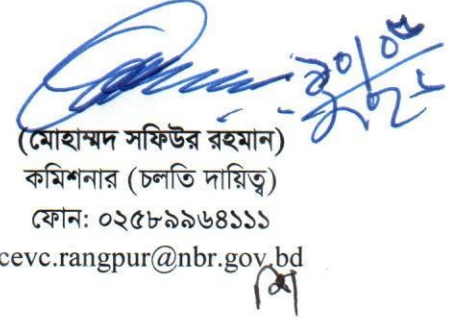 (মোহাম্মদ সফিউর রহমান)
কমিশনার (চলতি দায়িত্ব)
ফোন: ০২৫৮৯৯৬৪১১১
cevc.rangpur@nbr.gov.bd